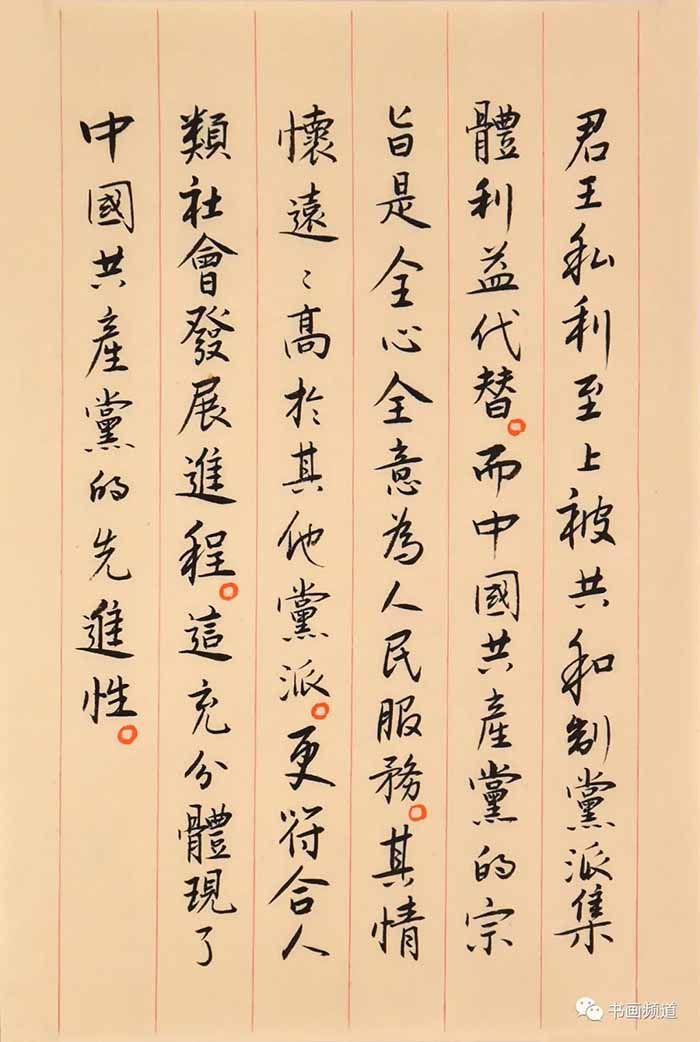 君王私利至上被共和制黨派集
體利益代替。而中國共產黨的宗
旨是全心全意為人民服務。其情
懷遠〻高於其他黨派。更符合人
類社會發展進程。這充分體現了
中國共產黨的先進性。
书画频道